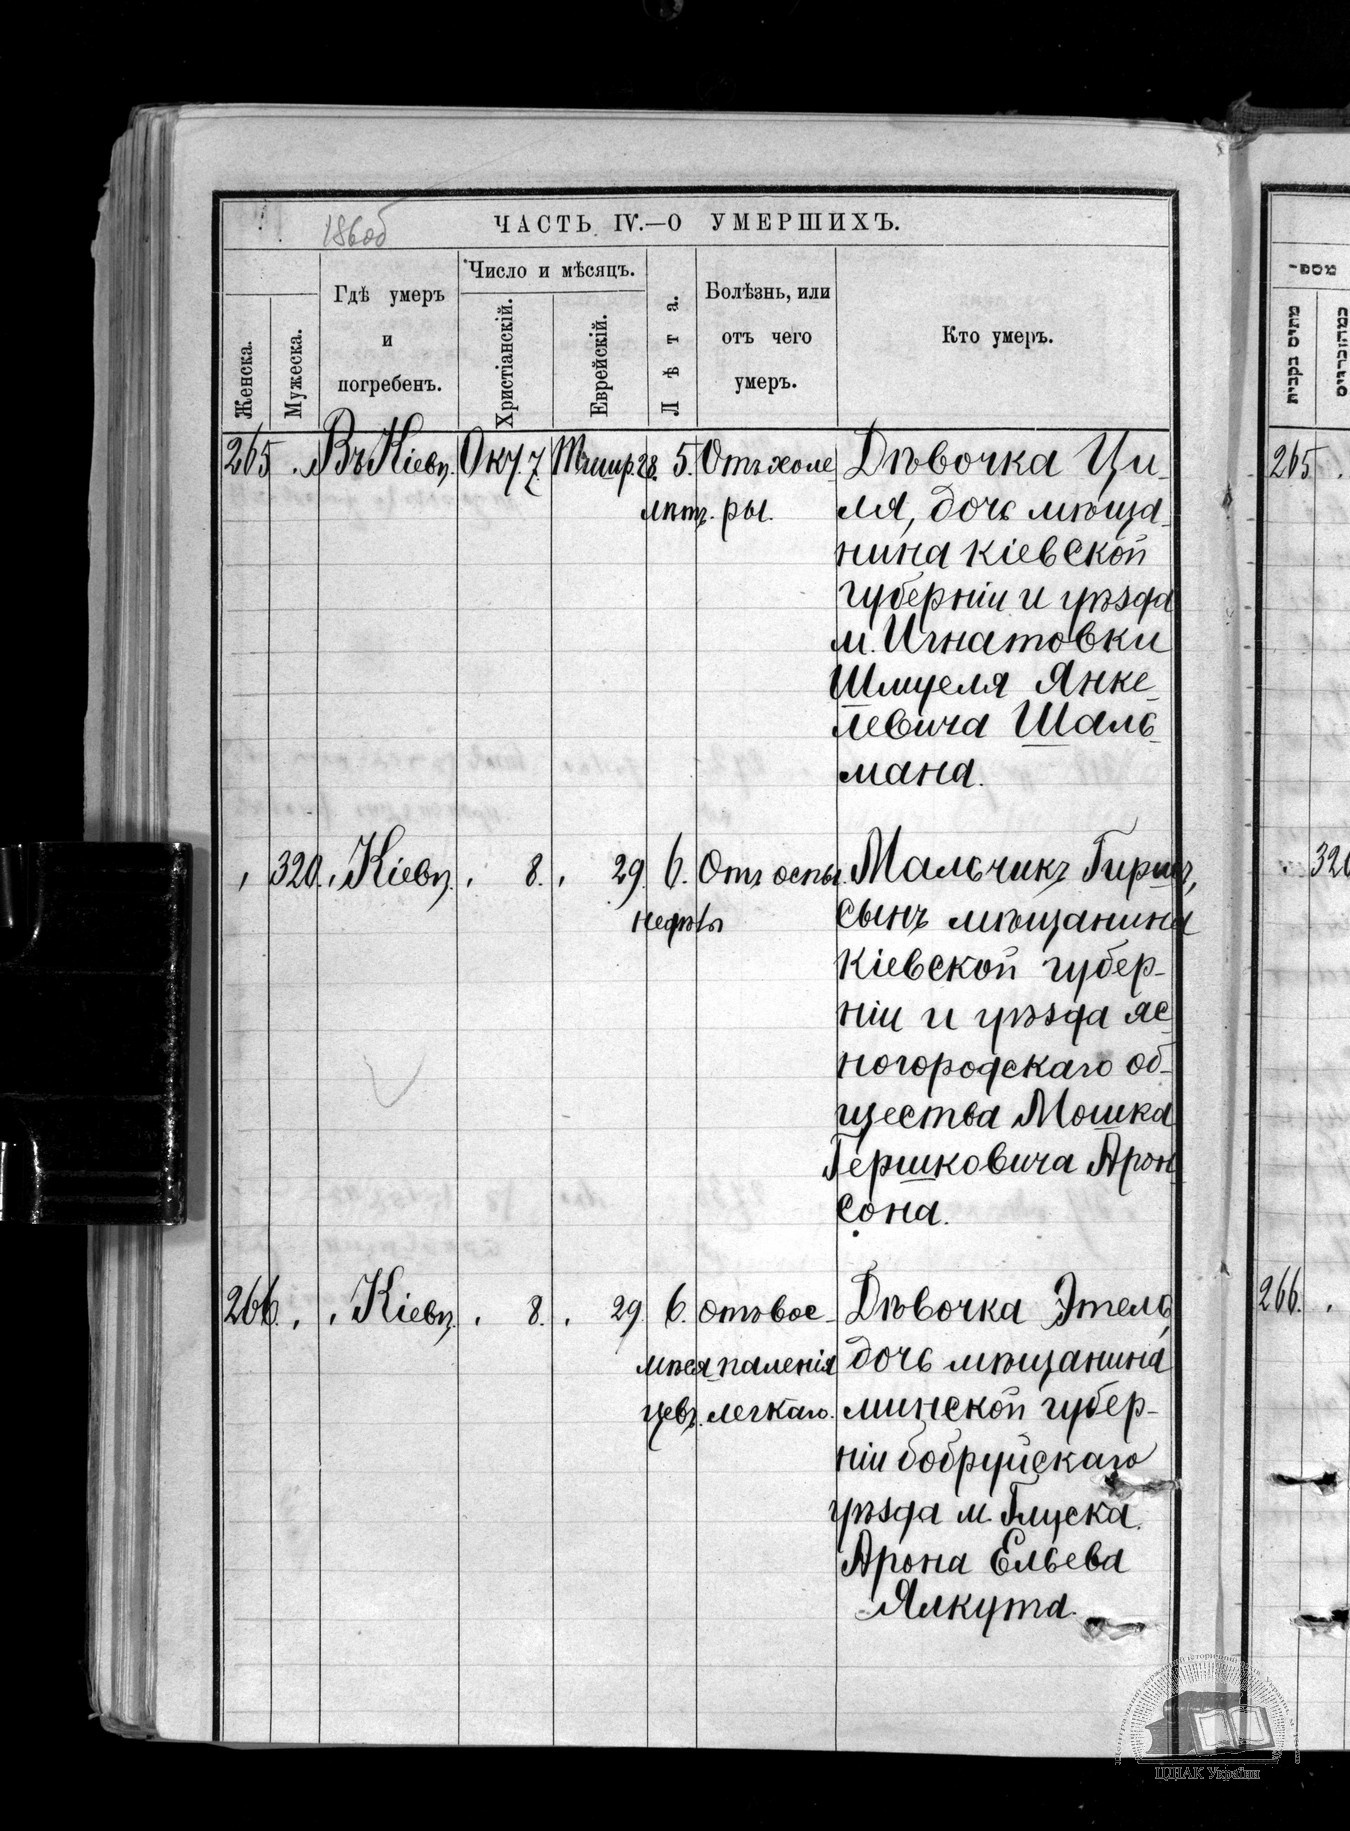 186об
ЧАСТЬ IV.—О УМЕРШИХЪ.
Женска.
Мужеска.
Гдѣ умеръ
и
погребенъ.
Число и мѣсяцъ.
Христіанскій.
Еврейскій.
Лѣта.
Болѣзнь, или
отъ чего
умеръ.
Кто умеръ.
265 Въ Кіевѣ. Окт. 7. Тишр. 28. 5. Отъ холе- Дѣвочка Ци-
лѣтъ. ры. ля, дочь мѣща-
нина кіевской
губерніи и уѣзда
м. Игнатовки
Шмуеля Янке-
левича Шаль-
мана.
320. Кіевѣ. 8. 29. 6. Отъ оспы. Мальчикъ Гиршъ,
недѣль сынъ мѣщанина
Кіевской губер-
ніи и уѣзда яс-
ногородскаго об-
щества Мошка
Гершковича Арон
сона.
266. Кіевѣ. 8. 29. 6. отъ вос- Дѣвочка Этель
мѣся- паленія дочь мѣщанина
цевъ. легкаго. минской губер-
ніи бобруйскаго
уѣзда м. Глуска
Арона Ельева
Ялкута.
מספ־
מתים נקבות
265
320
266.
ЦДІАК України